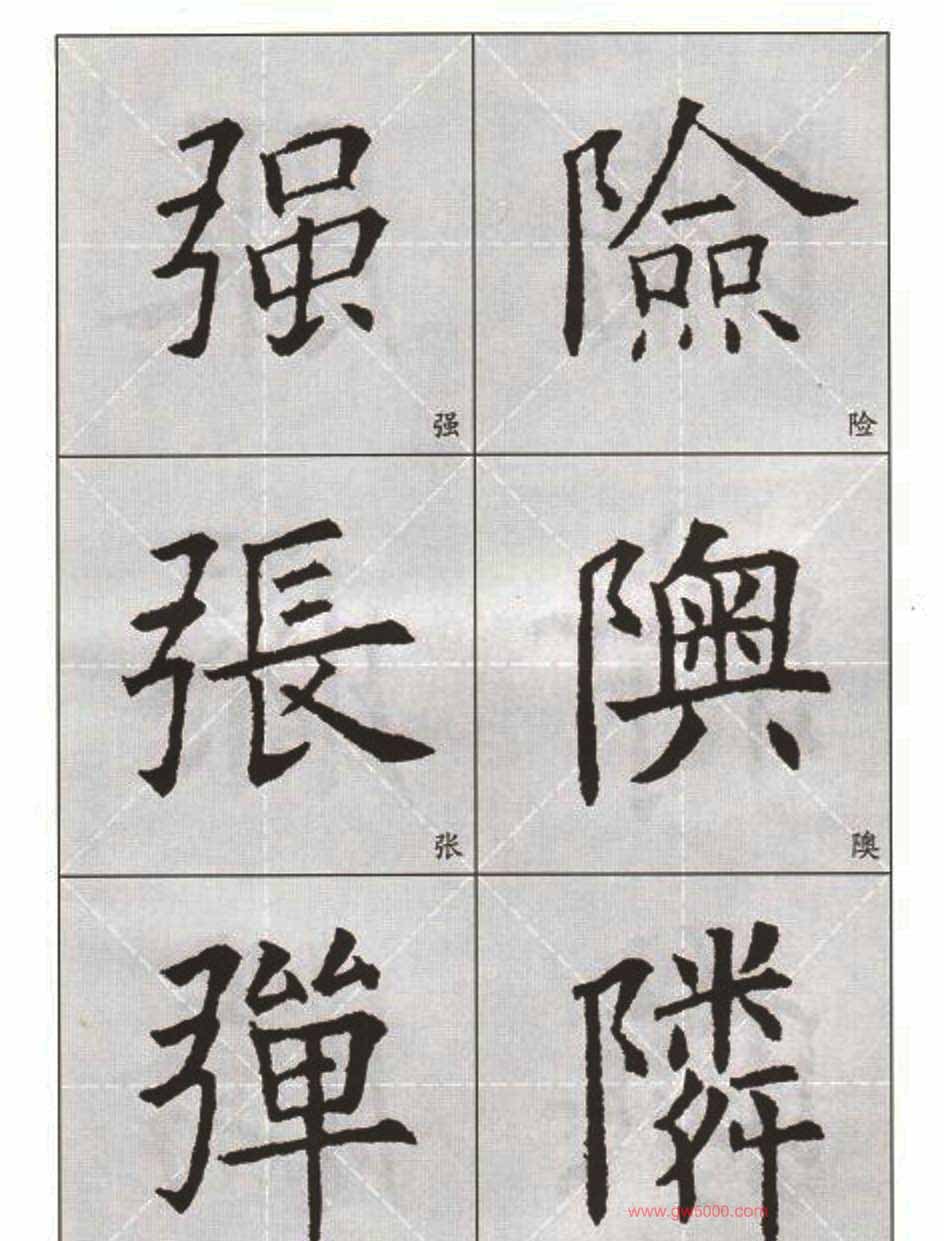 强 險
强 险
張 隩
张 隩
彈 隣
www.gw5000.com